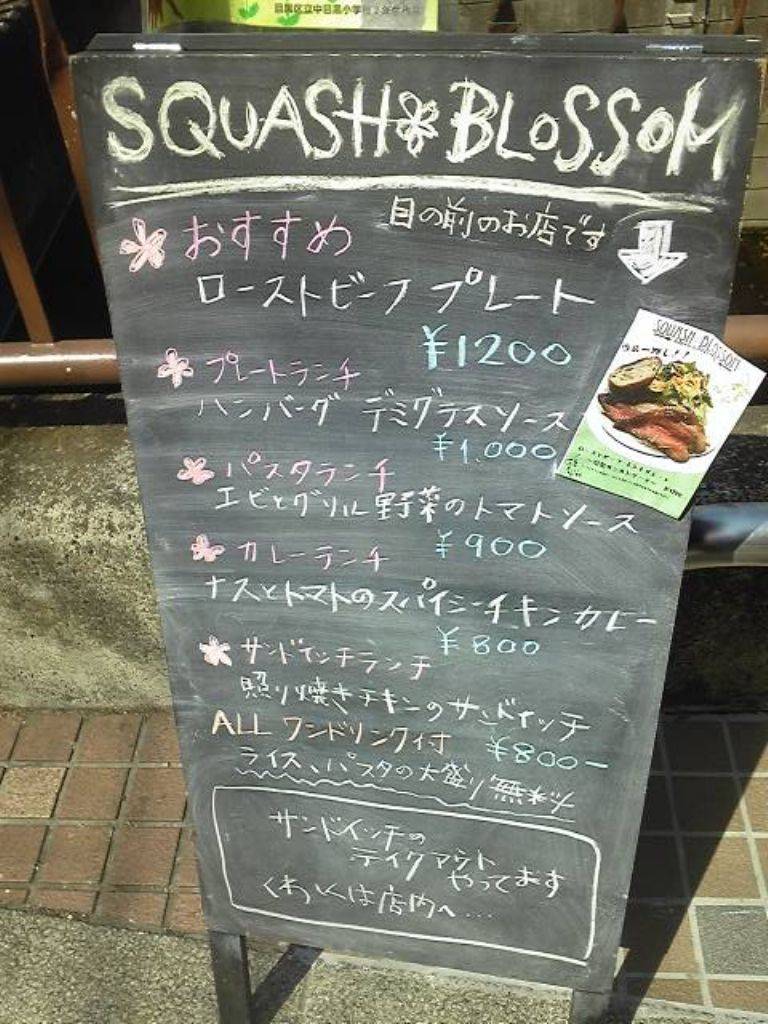 目黒区立中目黒小学校
SQUASH BLOSSOM
目の前のお店です
おすすめ
ローストビーフプレート
¥1200
プレートランチ
ハンバーグ デミグラスソース
¥1,000
パスタランチ
エビとグリル野菜のトマトソース
¥900
カレーランチ
ナスとトマトのスパイシーチキンカレー
¥800
サンドイッチランチ
照り焼きチキンのサンドイッチ
ALL ワンドリンク付
¥800-
ライス、パスタの大盛り無料
サンドイッチの
テイクアウト
やってます
くわしくは店内へ...
SQUASH BLOSSOM